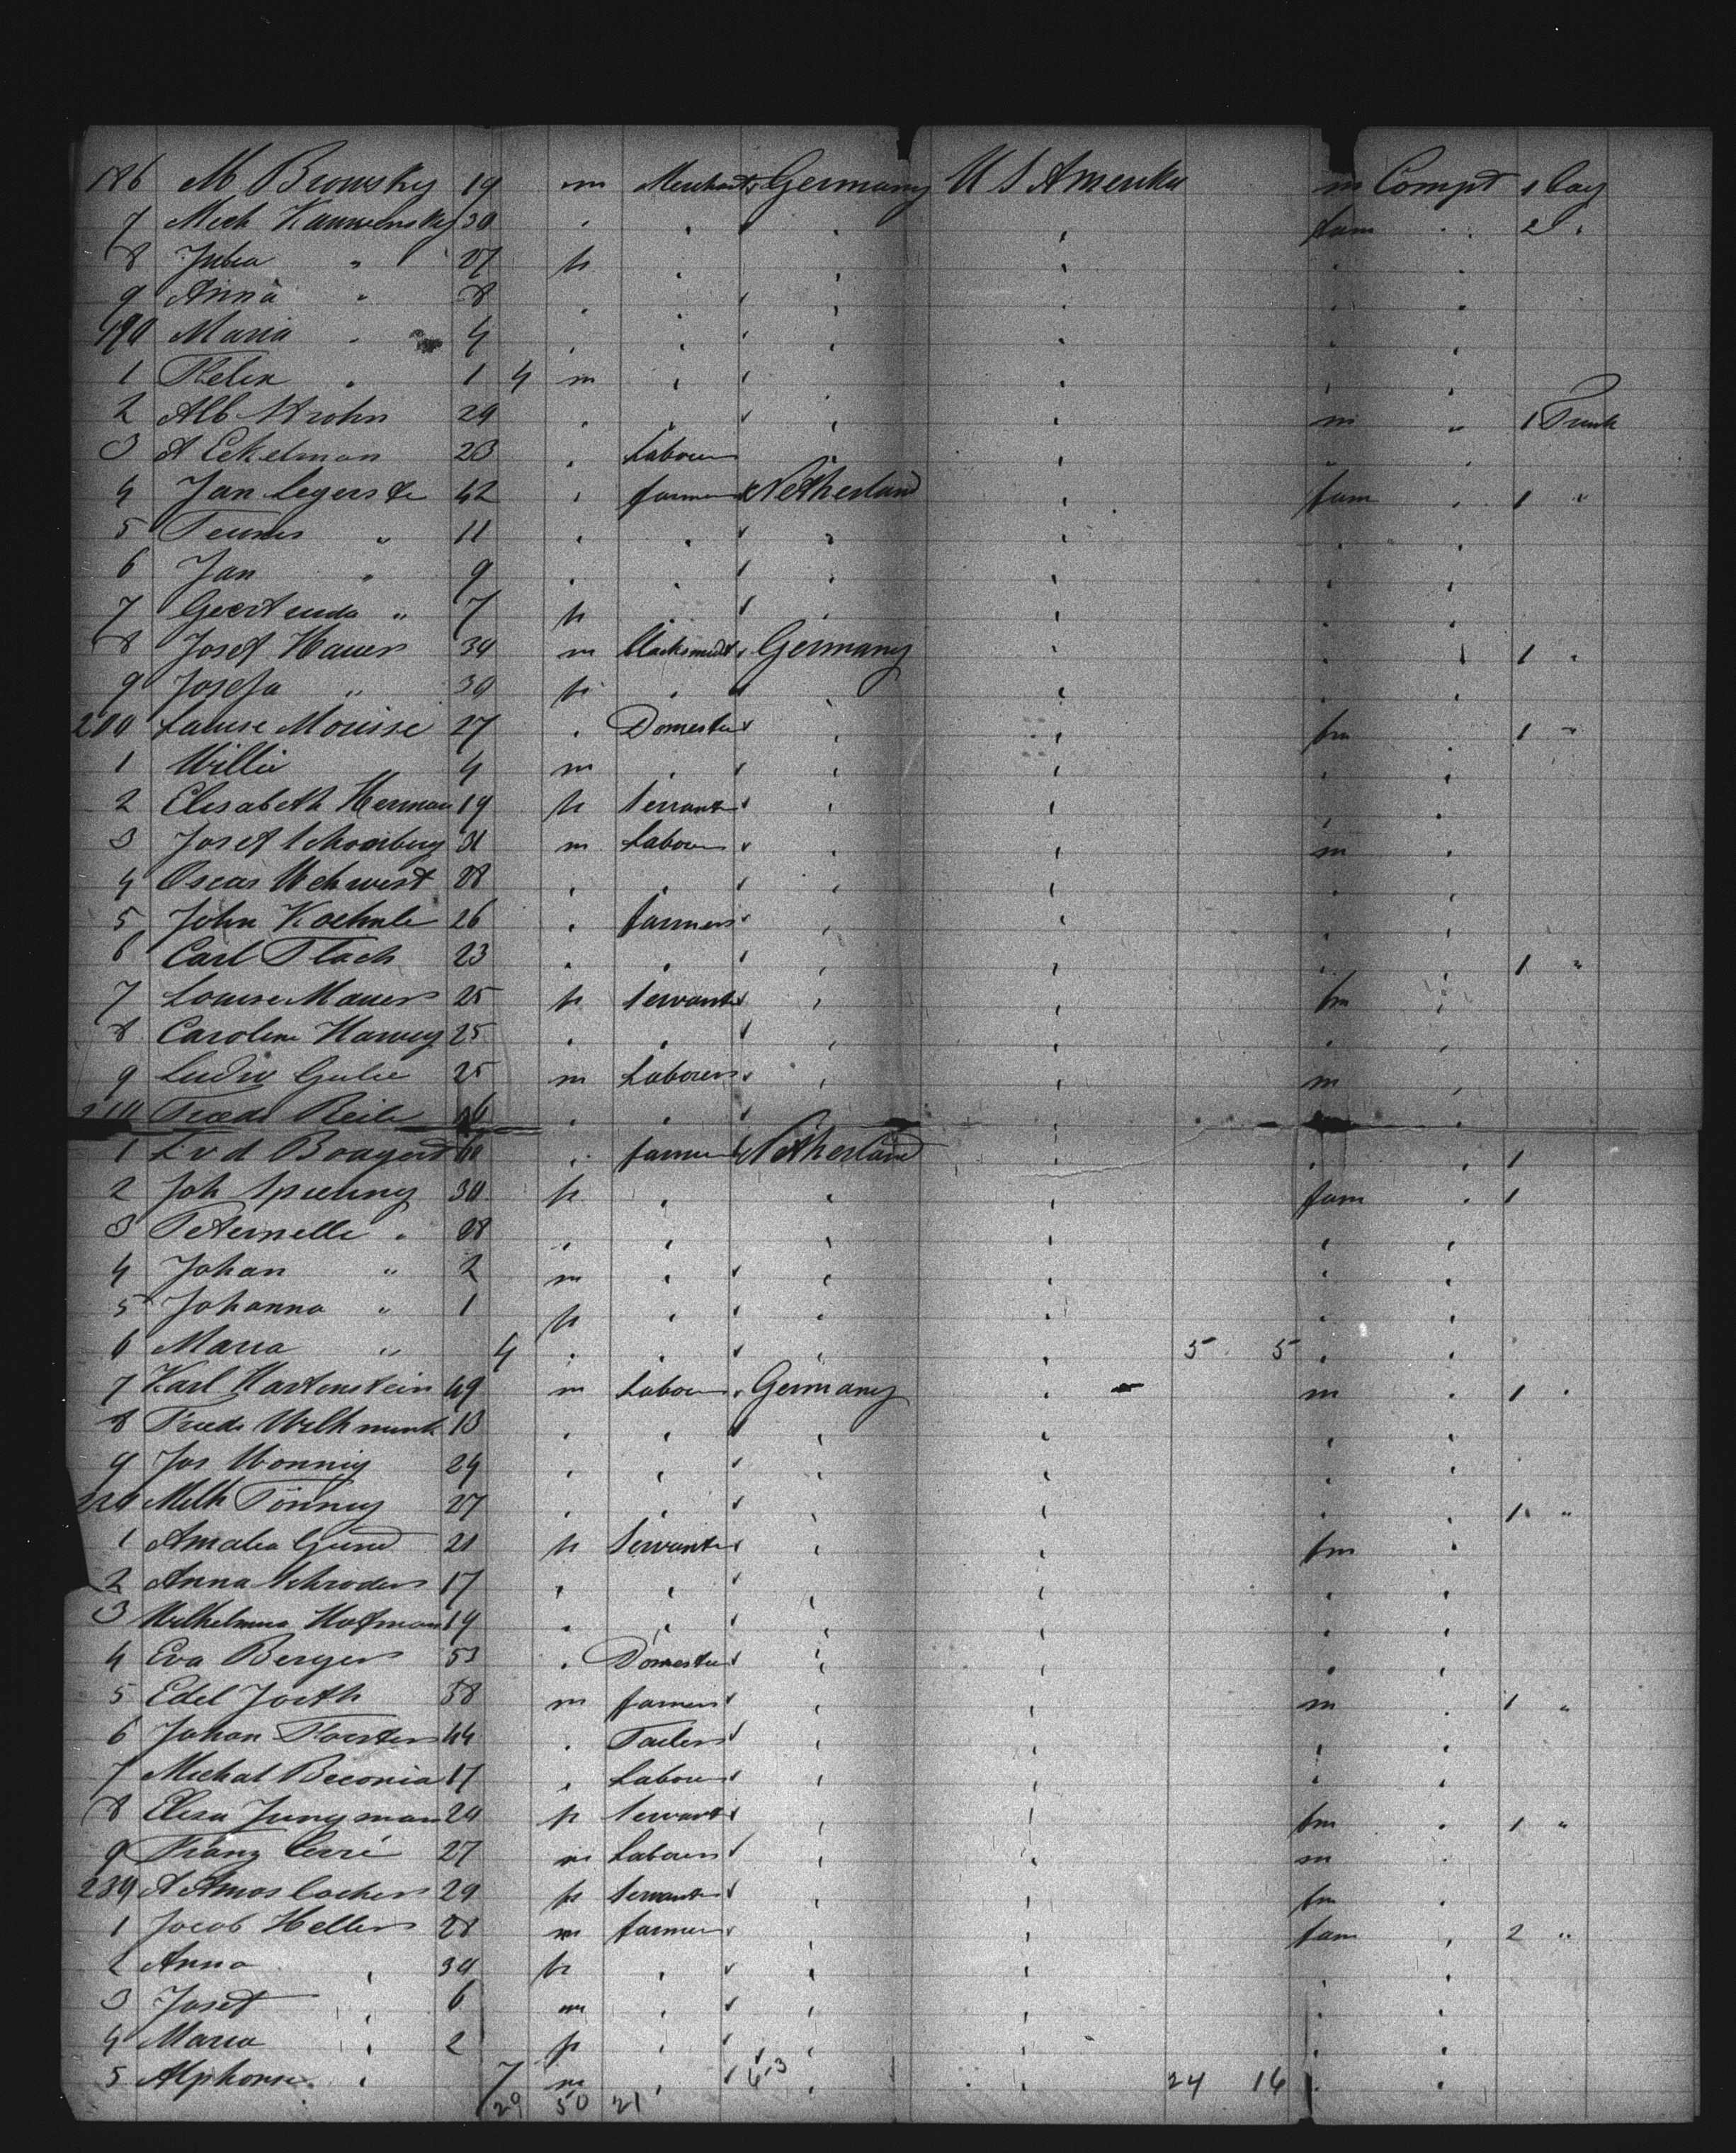 186 M Browsky 19 m Merchant Germany U S Amerika m Compt 1 Bag
7 Mich Kauwensky 30 " " " " fam " 2 "
8 Julia " 27 f " " "
9 Anna " 8 " " "
190 Maria " 4 " " "
1 Felix " 1 4 m " "
2 Alb Strohn 29 " " " m " 1 Trunk
3 A Eckelman 23 " Labourer " "
4 Jan Legerste 42 " farmer Netherland " fam " 1 "
5 Teunis " 11 " " " "
6 Jan " 9 " " " "
7 Geertruida " 7 f " " "
8 Josef Hauer 34 m blacksmidt Germany " " 1 "
9 Josefa " 30 f " " "
200 Lauise Mouisse 27 " Domestic " " fm " 1 "
1 Willie 4 m " " "
2 Elisabeth Herman 19 f Servant " "
3 Josef Schonberg 31 m Labourer " " m "
4 Oscar 28 " " " "
5 John Koehnle 26 " farmer " "
6 Carl Flach 23 " " " " " 1 "
7 Louise Mauer 25 f Servant " " fm "
8 Caroline Harvey 25 " " " "
9 Ludw Gulie 25 m Labourer " " m "
210 Friedr Reile " " " "
1 L v d Boagerd " farmer Netherland " " 1
2 Joh Spiering 30 f " " " fam " 1
3 Peternelle " 28 " " " "
4 Johan " 2 m " " "
5 Johanna " 1 f " " "
6 Maria " 4 " " " " 5 5 " "
7 Karl Hartenstein 49 m Labourer Germany " m " 1 "
8 Friedr 13 " " " "
9 Jos Wonnig 24 " " " "
220 Melk Tonnies 27 " " " " " 1 "
1 Amalia Gund 21 f Servant " " fm "
2 Anna Schroder 17 " " " "
3 Wilhelmina Hofman 19 " " " "
4 Eva Berger 53 " Domestic " "
5 Edel Joeth 38 m farmer " " m " 1 "
6 Johan Forster 44 " Tailor " "
7 Michal Beconia 17 " Labourer " "
8 Elisa Jungman 24 f Servant " " fm " 1 "
9 Franz Cerri 27 m Labourer " " m "
230 A Amoslacher 29 f Servant " " fm "
1 Jacob Heller 28 m farmer " " fam " 2 "
2 Anna " 30 f " " "
3 Josef " 6 m " " "
4 Maria " 2 f " " "
5 Alphonse " 7 m " " " 24 16 " "
29 50 21